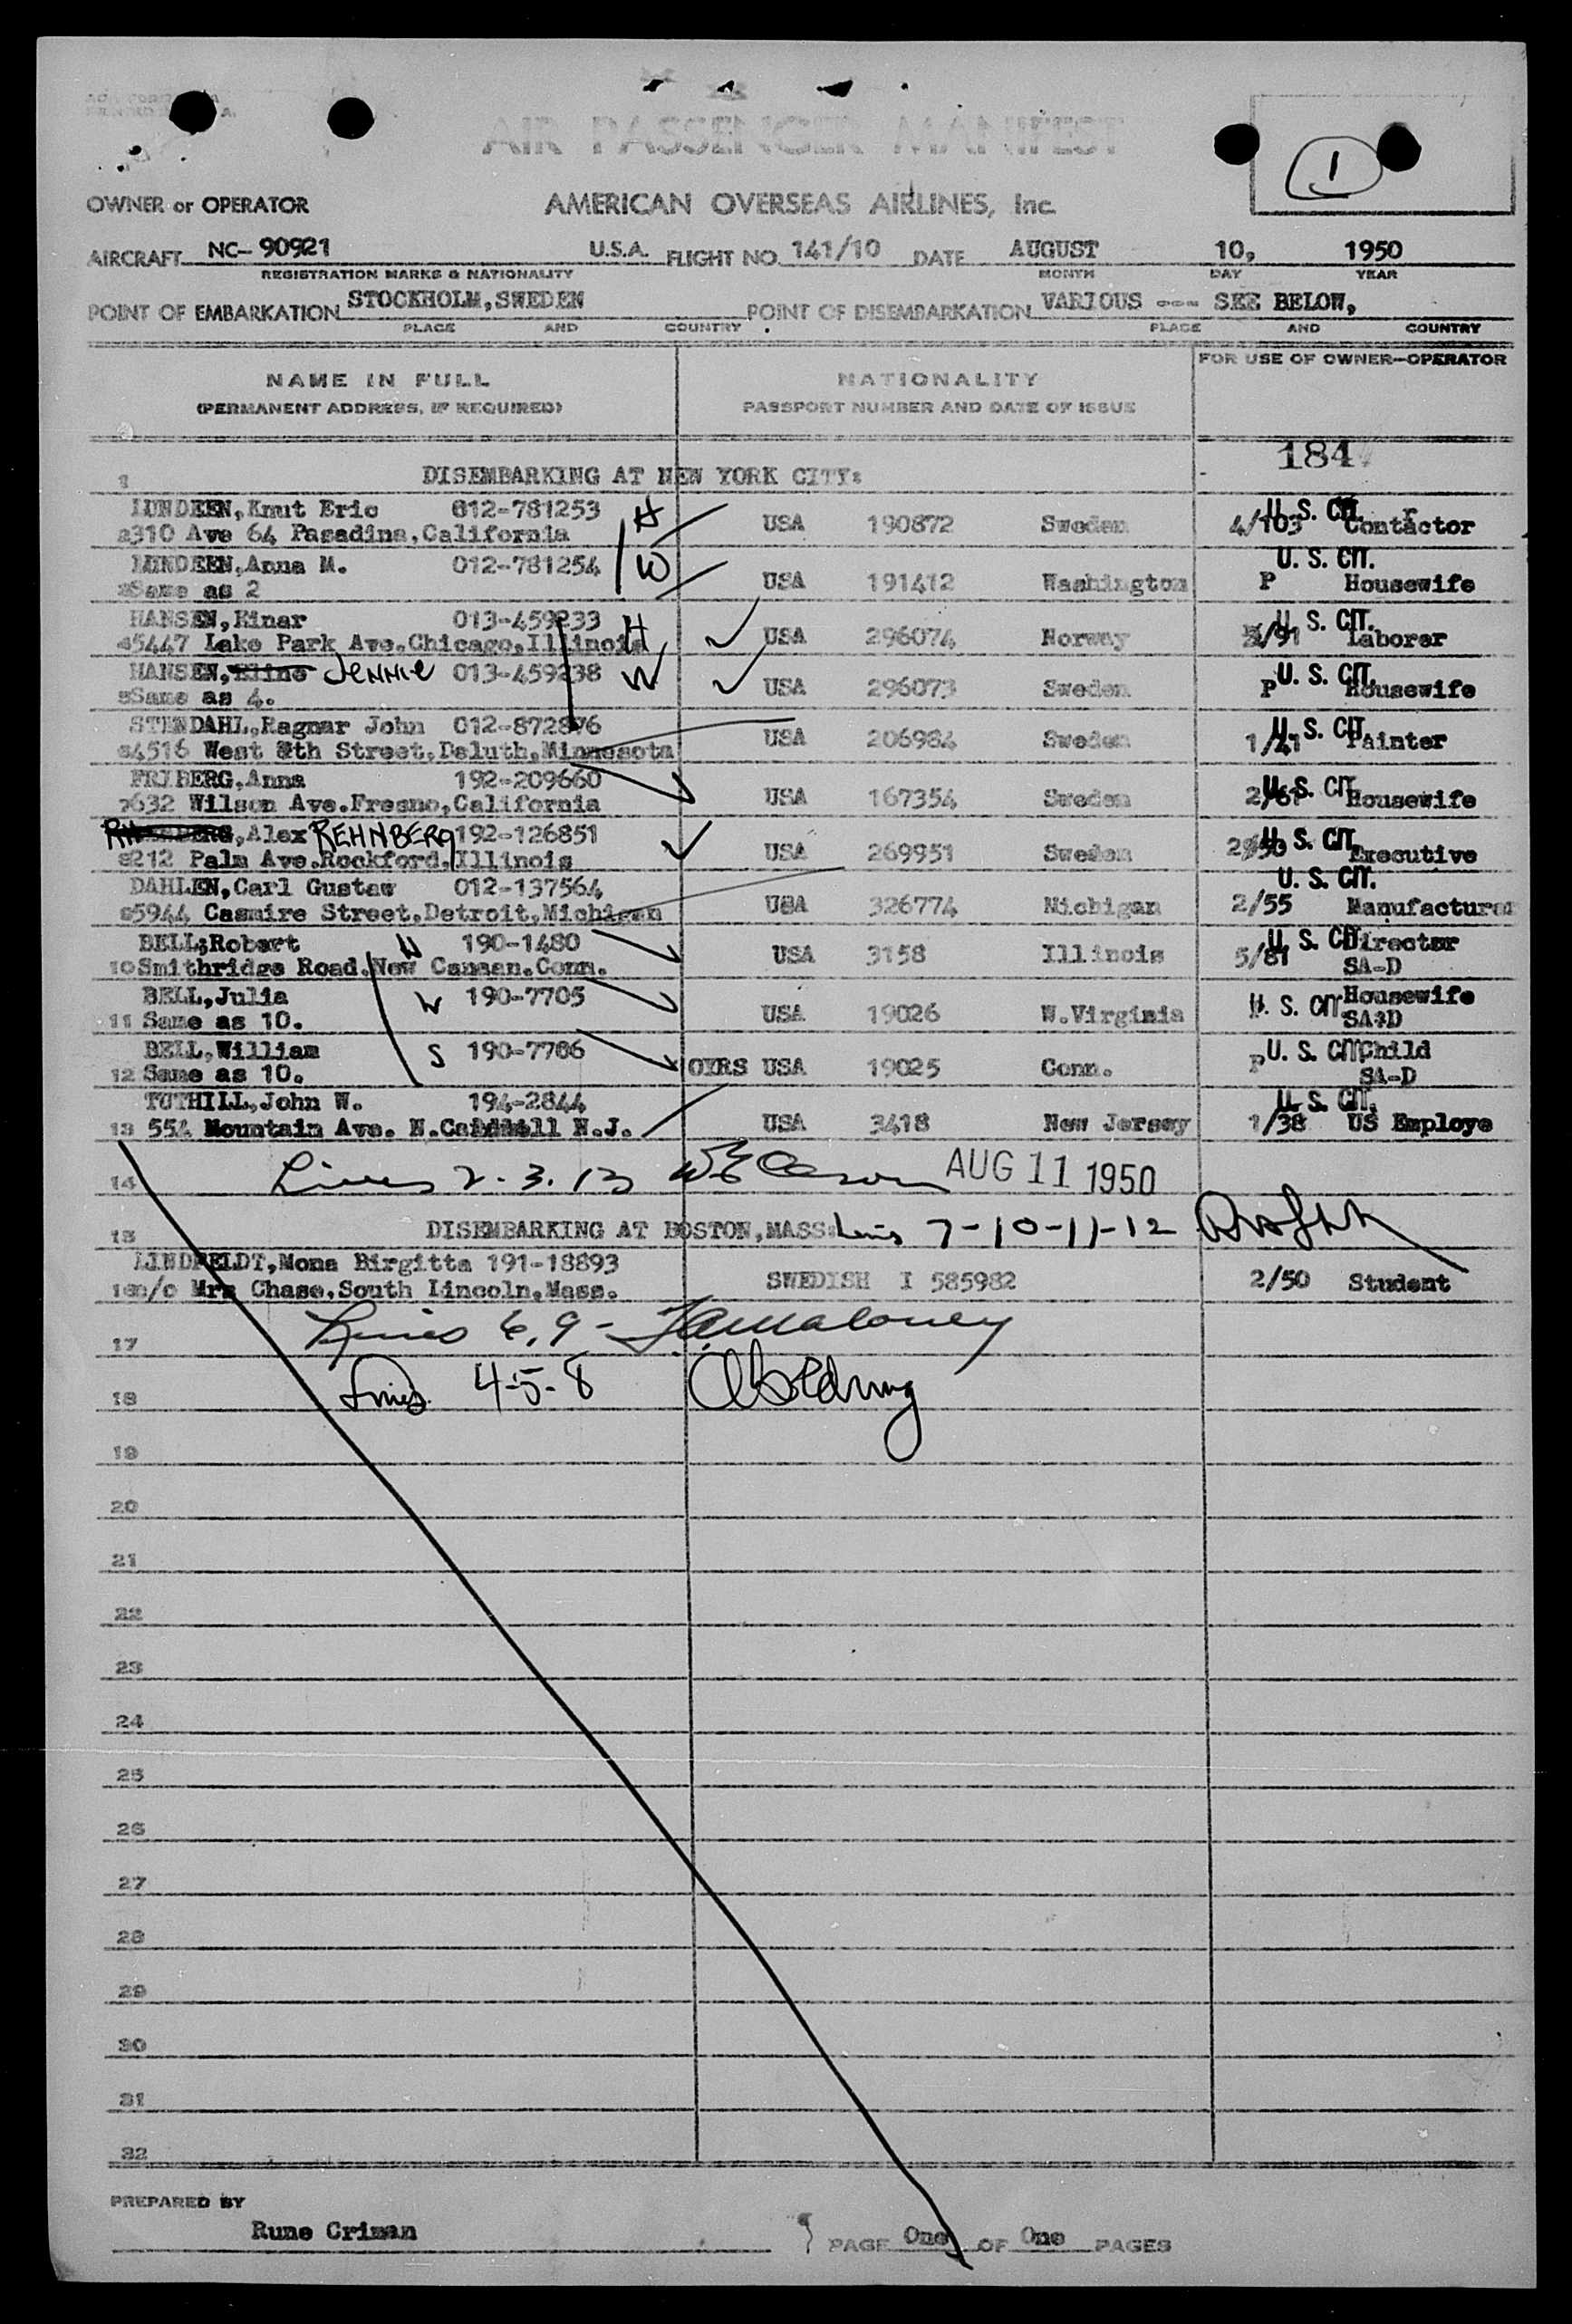 AIR PASSENGER MANIFEST
1
OWNER or OPERATOR AMERICAN OVERSEAS AIRLINES, Inc.
AIRCRAFT NC- 90921 U.S.A. FLIGHT NO. 141/10 DATE AUGUST 10, 1950
REGISTRATION MARKS & NATIONALITY MONTH DAY YEAR
POINT OF EMBARKATION STOCKHOLM,SWEDEN POINT OF DISEMBARKATION VARIOUS --- SEE BELOW,
PLACE AND COUNTRY PLACE AND COUNTRY
NAME IN FULL NATIONALITY FOR USE OF OWNER-OPERATOR
(PERMANENT ADDRESS, IF REQUIRED) PASSPORT NUMBER AND DATE OF ISSUE
184
1 DISEMBARKING AT NEW YORK CITY:
LUNDEEN,Knut Eric 012-781253 H U. S. CIT. r
2 310 Ave 64 Pasadina,California USA 190872 Sweden 4/103 Contactor
LUNDEEN,Anna M. 012-781254 W U. S. CIT.
3 Same as 2 USA 191412 Washington P Housewife
HANSEN,Einar 013-459233 H U. S. CIT.
4 5447 Lake Park Ave.Chicago,Illinois USA 296074 Norway /91 Laborer
HANSEN, Jennie 013-459238 W U. S. CIT.
5 Same as 4. USA 296073 Sweden P Housewife
STENDAHL,Ragnar John 012-872876 U. S. CIT.
6 4516 West 8th Street,Deluth,Minnesota USA 206984 Sweden 1/41 Painter
FRIBERG,Anna 192-209660 U. S. CIT.
7 632 Wilson Ave.Fresno,California USA 167354 Sweden 2/61 Housewife
,Alex REHNBERG 192-126851 U. S. CIT.
8 212 Palm Ave.Rockford,Illinois USA 269951 Sweden Executive
DAHLEN,Carl Gustaw 012-137564 U. S. CIT.
9 5944 Casmire Street,Detroit,Michigan USA 326774 Michigan 2/55 Manufacturer
BELL,Robert H 190-1480 U. S. CIT. Director
10 Smithridge Road.New Canaan.Conn. USA 3158 Illinois 5/81 SA-D
BELL,Julia W 190-7705 U. S. CIT. Housewife
11 Same as 10. USA 19026 W.Virginia SA-D
BELL,William S 190-7706 U. S. CIT. Child
12 Same as 10. USA 19025 Conn. P SA-D
TUTHILL,John W. 194-2844 U. S. CIT.
13 554 Mountain Ave. N. N.J. USA 3418 New Jersey 1/38 US Employe
14 Lines 2. 3. 13 AUG 11 1950
15 DISEMBARKING AT BOSTON,MASS: Lines 7-10-11-12
LINDFELDT,Mona Birgitta 191-18893
16 c/o Mrs Chase,South Lincoln,Mass. SWEDISH I 585982 2/50 Student
17 Lines 6,9- Maloney
18 Lines 4-5-8
19
20
21
22
23
24
25
26
27
28
29
30
31
32
PREPARED BY
Rune Criman PAGE One OF One PAGES